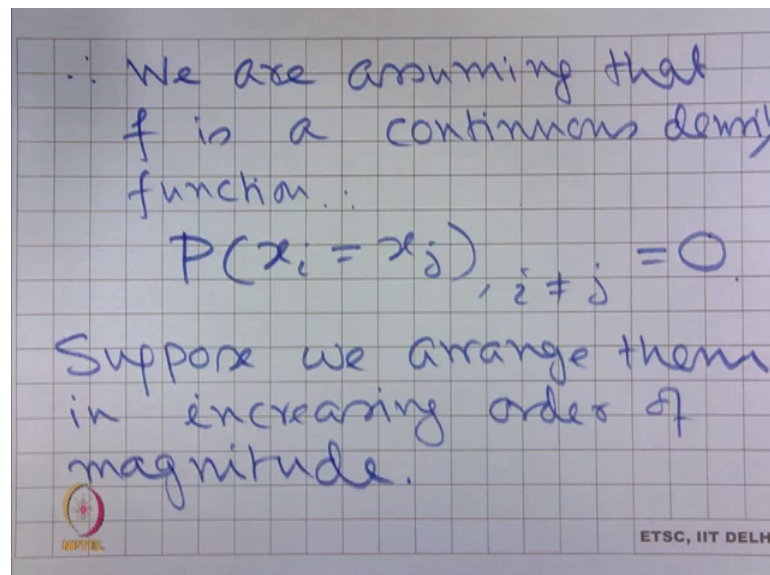 ∵ We are assuming that
f is a continuous density
function ∴
P(xᵢ = xⱼ), i ≠ j = 0.
Suppose we arrange them
in increasing order of
magnitude.
NPTEL
ETSC, IIT DELH